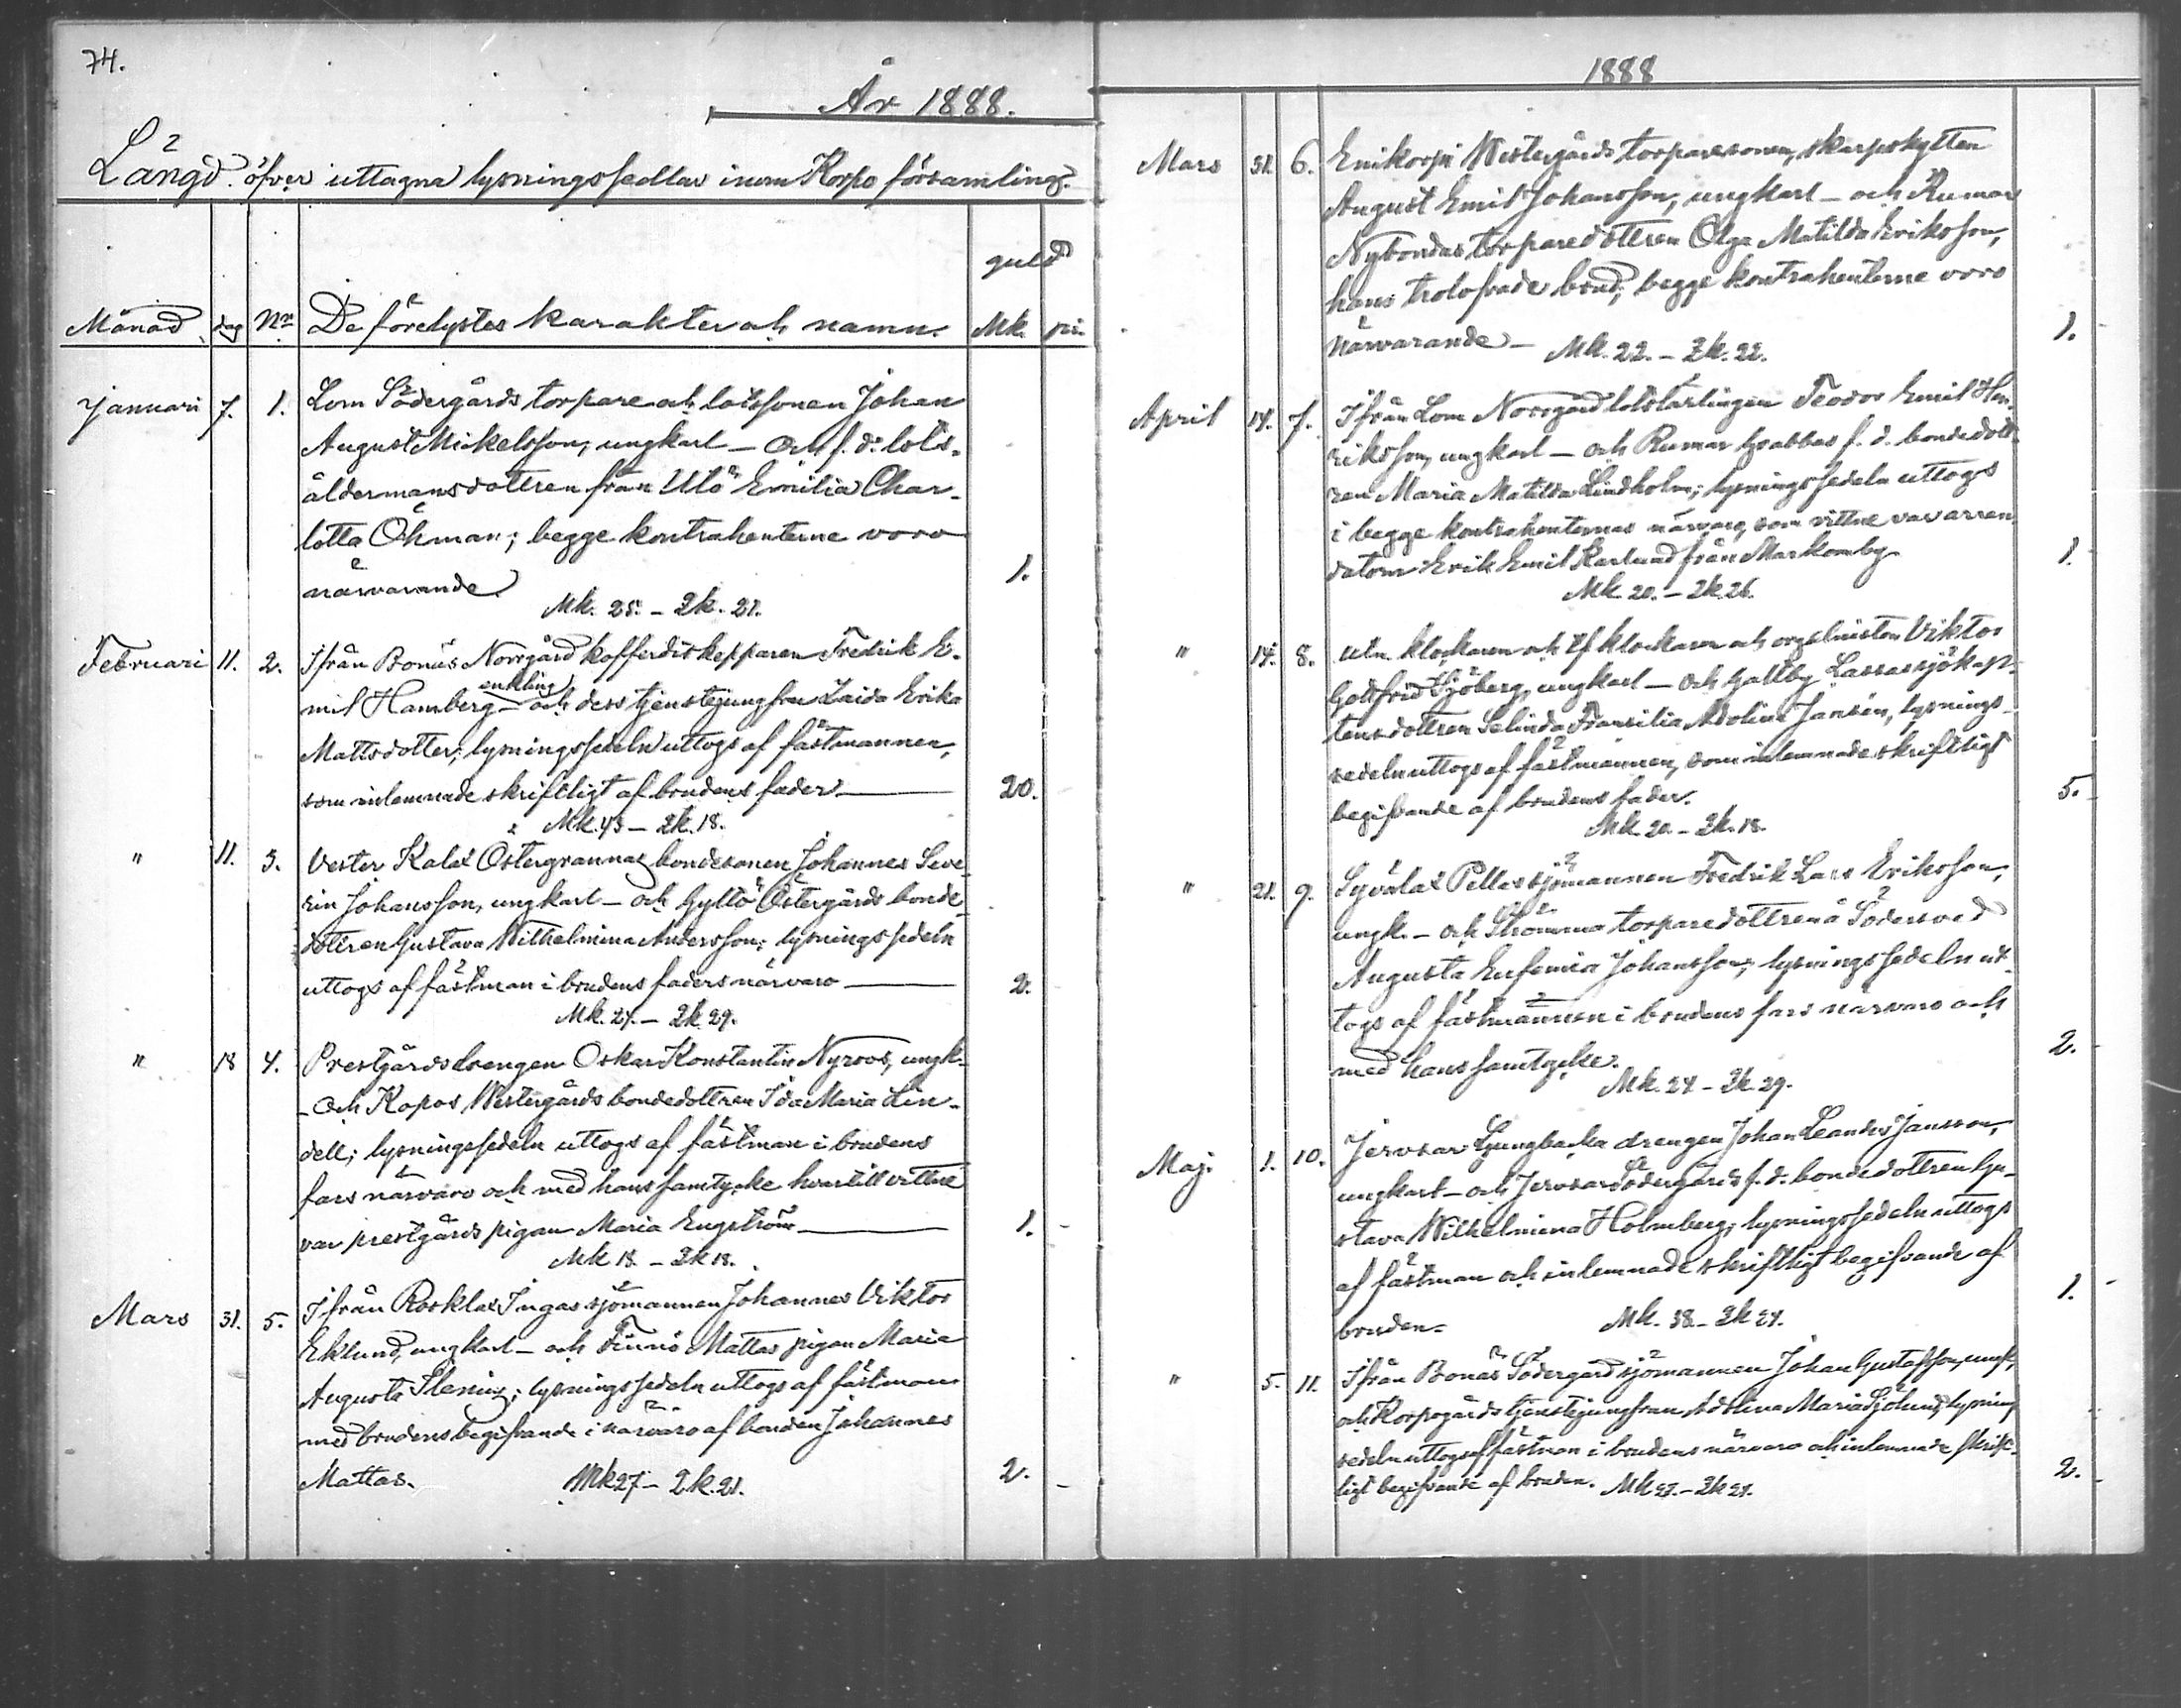 74.
År 1888.
Längd öfver uttagna lysningssedlar inom Korpo församling.
guld
Månad dag Nr De förelystes karakter och namn. Mk. pi.
Januari 7. 1. Lom Södergårds torpare och lotssonen Johan
August Mickelsson, ungkarl – och f. d. lots-
åldermansdottren från Utö Emilia Char-
lotta Öhman; begge kontrahenterne voro
närvarande 1.
Mk. 25. – Qk. 27.
Februari 11. 2. Ifrån Bonäs Norrgård kofferdiskepparen Fredrik E-
enkling
mil Hamberg – och dess tjenstejungfru Zaida Erika
Mattsdotter; lysningssedeln uttogs af fästmannen,
som inlemnade skriftligt af brudens fader. 20.
Mk. 43 – Qk. 18.
" 11. 3. Vester Kalax Östergrannas bondesonen Johannes Seve-
rin Johansson, ungkarl – och Gyltö Östergårds bonde-
dottren Gustava Wilhelmina Andersson; lysningssedeln
uttogs af fästman i brudens faders närvaro 2.
Mk. 24. – Qk 29.
" 18 4. Prestgårdsdrengen Oskar Konstantin Nyroos, ungk.
– och Kopos Westergårds bondedottren Ida Maria Lin-
dell; lysningssedeln uttogs af fästman i brudens
fars närvaro och med hans samtycke hvartill vittne
var prestgårds pigan Maria Engström 1. –
Mk 18. – Qk 18.
Mars 31. 5. Ifrån Rosklax Ingas sjömannen Johannes Viktor
Eklund, ungkarl – och Finnö Mattas pigan Maria
Augusta; lysningssedeln uttogs af fästman
med brudens begifvande i närvaro af bonden Johannes
Mattas. Mk 27 – Qk. 21. 2. –
1888
Mars 31. 6. Enikorpi Westergårds torparesonen, skarpskytten
August Emil Johansson, ungkarl – och Rumar
Nybondas torparedottren Olga Matilda Eriksson,
hans trolofvade brud; begge kontrahenterne voro
närvarande – Mk. 22. – Qk. 22. 1. –
April 14. 7. Ifrån Lom Norrgård lotslärlingen Teodor Emil Hen-
riksson, ungkarl – och Rumar Grabbas f. d. bondedott-
ren Maria Matilda Lindholm; lysningssedeln uttogs
i begge kontrahenternas närvaro, som vittne var arren-
datorn Erik Emil Karlund från Markomby 1. –
Mk. 20. – Qk 26.
" 14. 8. utn. klockaren och tf klockaren och orgelnisten Viktor
Gottfrid Sjöberg, ungkarl – och Galtby Lassas sjökap-
tensdottren Selinda Fransilia Adolina Jansén, lysnings-
sedeln uttogs af fästmannen, som inlemnade skriftligt
begifvande af brudens fader. 5. –
Mk. 20. – Qk. 18.
" 21. 9. Syvälax Pellas sjömannen Fredrik Lars Eriksson,
ungk. – och Strömma torparedottren å Södersved
Augusta Eufemia Johansson; lysningssedeln ut-
togs af fästmannen i brudens fars närvaro och
med hans samtycke. 2. –
Mk. 24 – Qk 29.
Maj. 1. 10. Jervsar Ljungbacka drengen Johan Leander Jansson,
ungkarl – och Jervsar Södergårds f. d. bondedottren Gu-
stava Wilhelmina Holmberg; lysningssedeln uttogs
af fästman och inlemnade skriftligt begifvande af
bruden. Mk. 38. – Qk 27. 1. –
" 5. 11. Ifrån Bonäs Södergård sjömannen Johan Gustafsson, ungk,
och Korpogårds tjenstejungfrun Adolina Maria Sjölund; lysning
sedeln uttogs af fästman i brudens närvaro och inlemnade skrift-
ligt begifvande af bruden. Mk 27. – Qk 27. 2. –